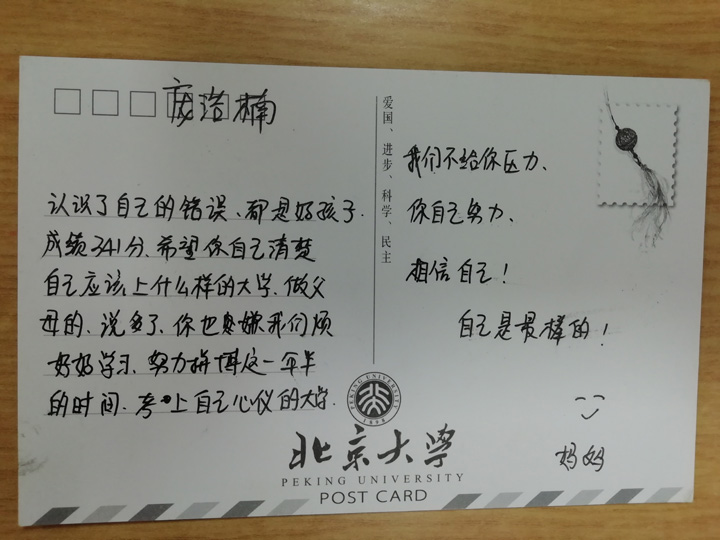 庞浩楠
认识了自己的错误、都是好孩子.
成绩341分、希望你自己清楚
自己应该上什么样的大学、做父
母的、说多了、你也嫌我们烦
好好学习、努力拼博这一年半
的时间.考上自己心仪的大学.
爱国、进步、科学、民主
我们不给你压力、
你自己努力、
相信自己!
自己是最棒的!
妈妈
PEKING UNIVERSITY
1898
北京大学
PEKING UNIVERSITY
POST CARD